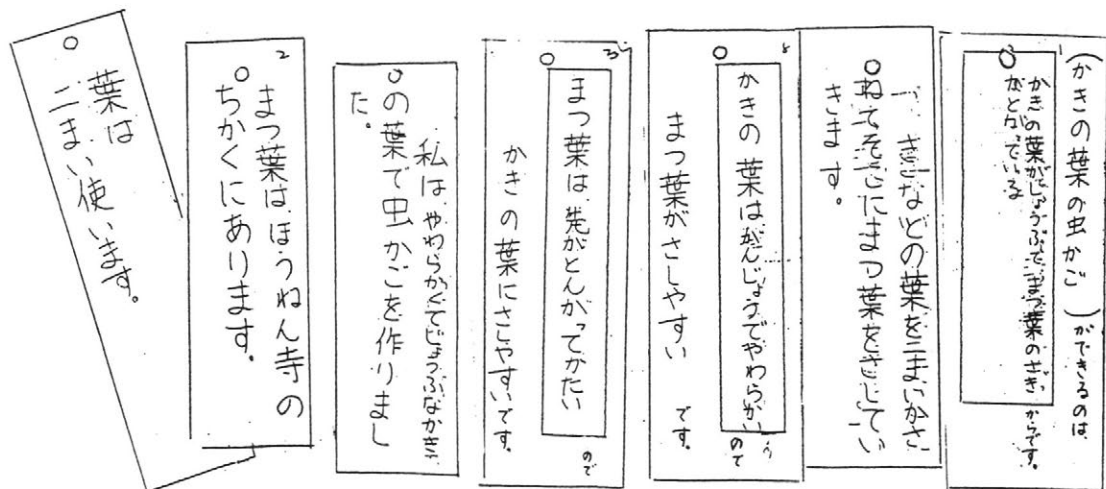 1
(かきの葉の虫かご)ができるのは、
かきの葉がじょうぶで、まつ葉のさきが
とがっている
からです。
きなどの葉を二まいかさ
ねてそこにまつ葉をさしてい
きます。
かきの葉はがんじょうでやわらかい
ので
まつ葉がさしやすい です。
まつ葉は先がとんがってかたい
ので
かきの葉にさしやすいです。
私は、やわらかくてじょうぶなかき
の葉で虫かごを作りまし
た。
2
まつ葉は、ほうねん寺の
ちかくにあります。
葉は
二まい使います。